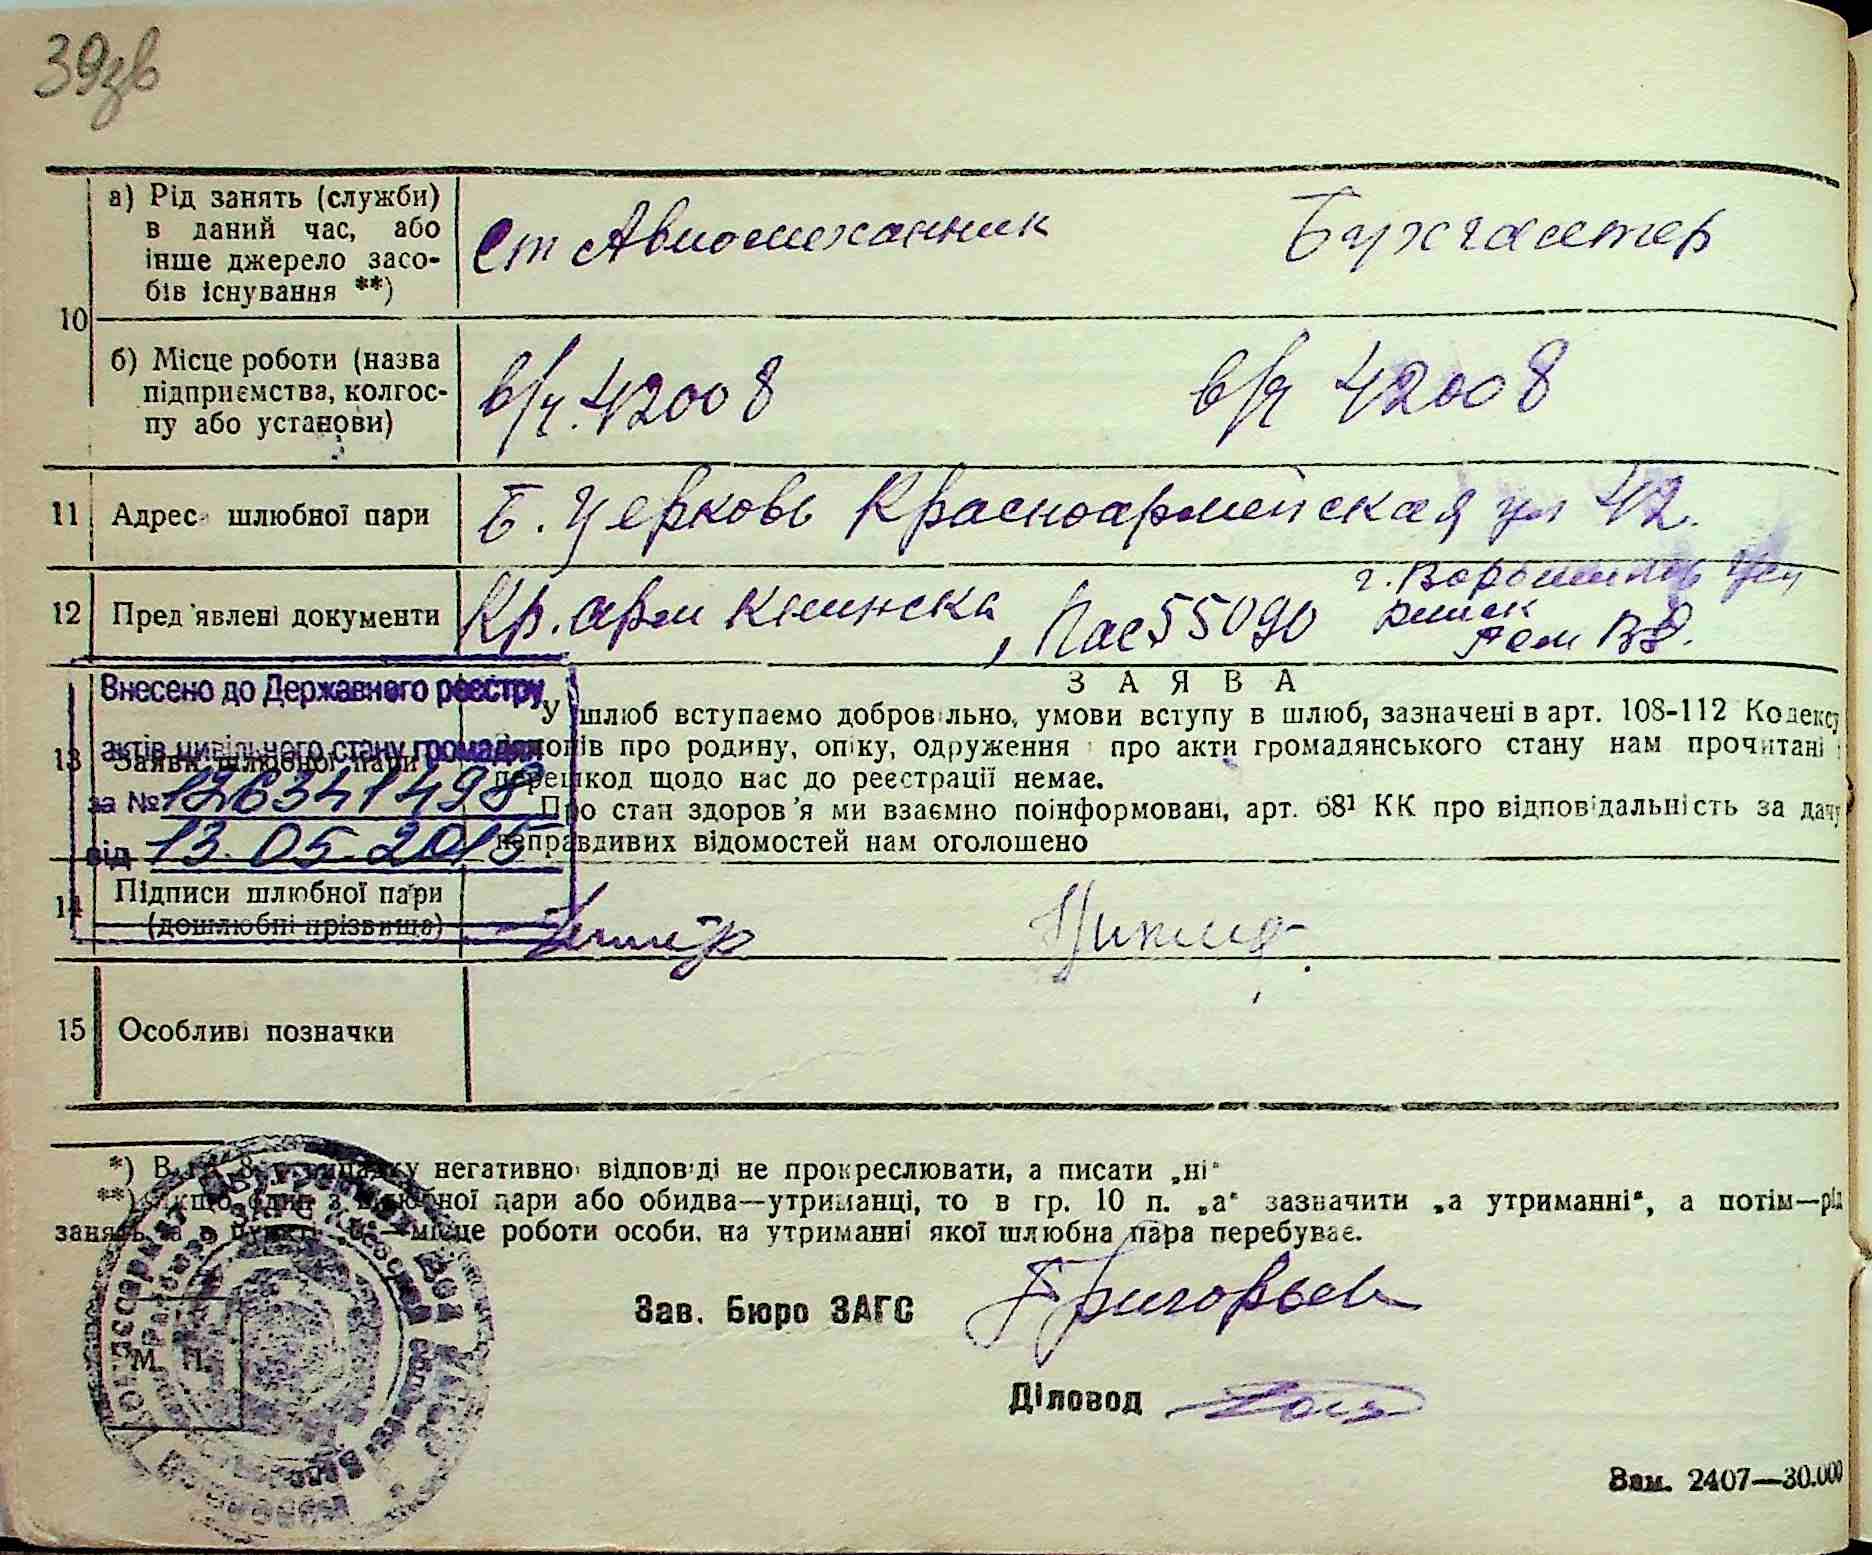 39зв
а) Рід занять (служби)
в даний час, або
інше джерело засо-
бів існування **)
Ст Авиомеханник
Бухгалтер
10
б) Місце роботи (назва
підприємства, колгос-
пу або установи)
в/ч. 42008
в/ч 42008
11 Адрес шлюбної пари
Б. Церковь Красноармейская ул 42.
12 Пред'явлені документи
Кр. арм книжска, Пас 55090
г. Ворошилов
рынск
дом
Внесено до Державного реєстру
актів цивільного стану громадян
за № 126341498
від 13.05.2015
З А Я В А
13 Заяви шлюбної пари
У шлюб вступаємо добровільно, умови вступу в шлюб, зазначені в арт. 108-112 Кодексу
законів про родину, опіку, одруження і про акти громадянського стану нам прочитані і
перешкод щодо нас до реєстрації немає.
Про стан здоров'я ми взаємно поінформовані, арт. 68¹ КК про відповідальність за дачу
неправдивих відомостей нам оголошено
14 Підписи шлюбної пари
(дошлюбні прізвища)
15 Особливі позначки
*) В гр. 8 у випадку негативної відповіді не прокреслювати, а писати „ні“
**) Якщо один з шлюбної пари або обидва—утриманці, то в гр. 10 п. „а“ зазначити „а утриманні“, а потім—рід
занять, а в пункті „б“—місце роботи особи, на утриманні якої шлюбна пара перебуває.
М. П.
Зав. Бюро ЗАГС Григорьев
Діловод
Зам. 2407—30.000